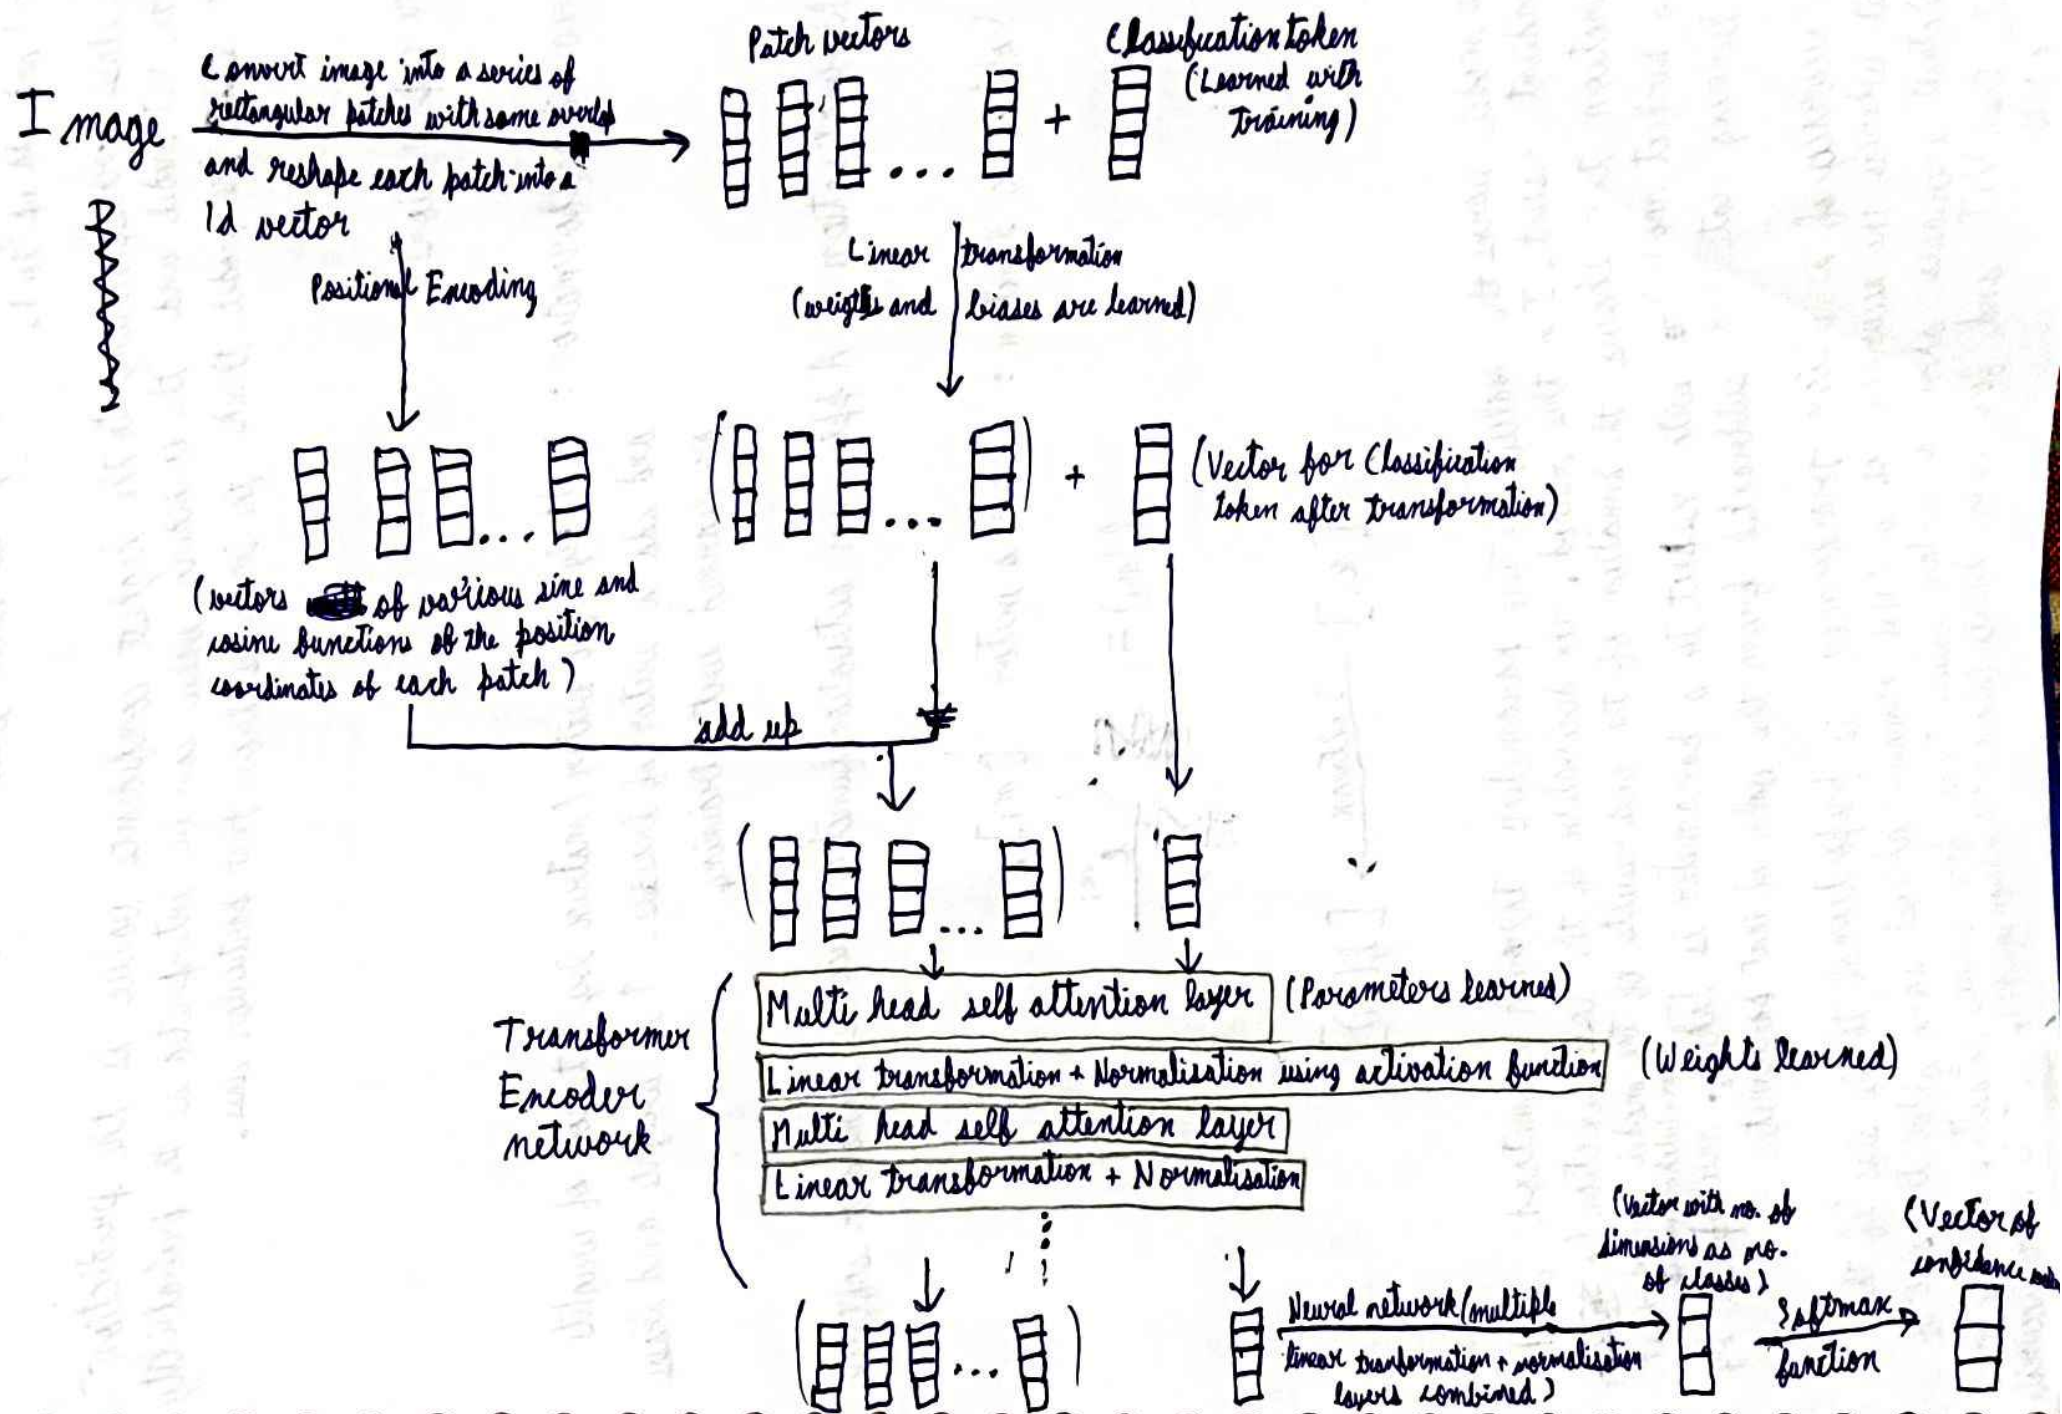 Image
Convert image into a series of
rectangular patches with some overlap
and reshape each patch into a
1d vector
Patch vectors
...
+
Classification token
(Learned with
training)
Positional Encoding
Linear transformation
(weights and biases are learned)
...
( ... ) +
(Vector for Classification
token after transformation)
(vectors of various sine and
cosine functions of the position
coordinates of each patch)
add up
( ... )
Transformer
Encoder
network
Multi head self attention layer (Parameters learned)
Linear transformation + Normalisation using activation function (Weights learned)
Multi head self attention layer
Linear transformation + Normalisation
( ... )
Neural network (multiple
linear tranformation + normalisation
layers combined)
(Vector with no. of
dimensions as no.
of classes)
Softmax
function
(Vector of
confidence